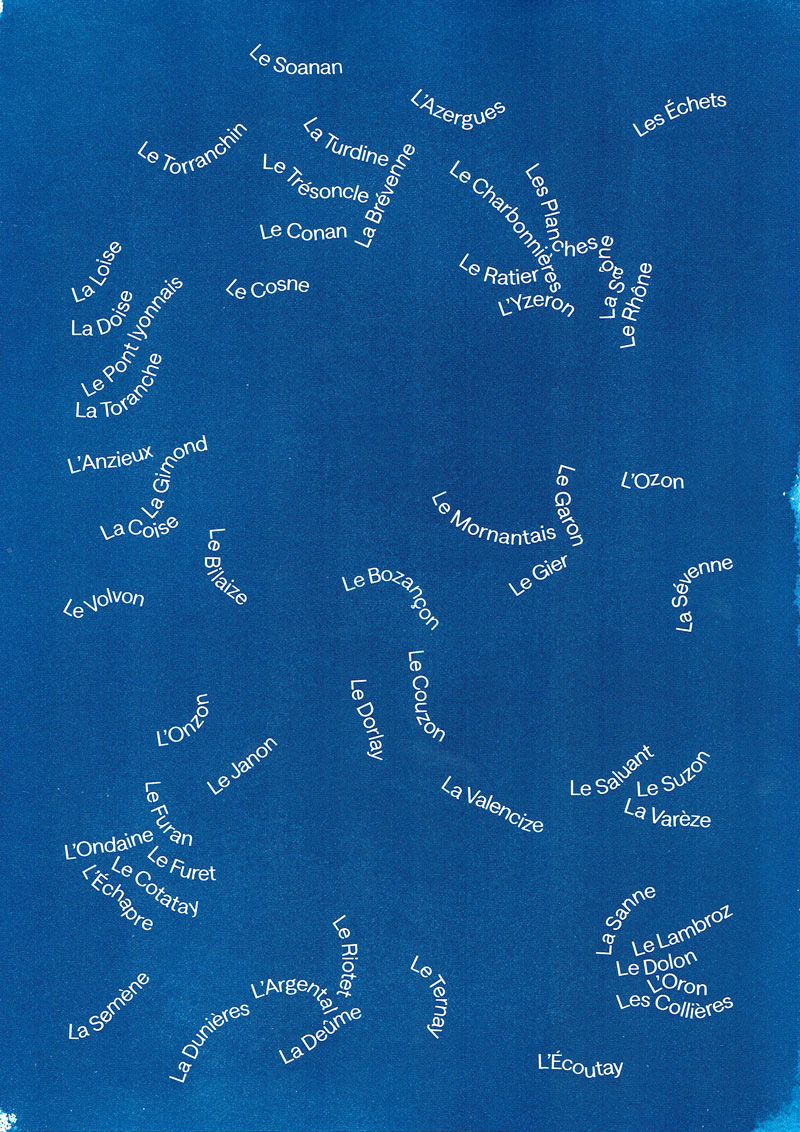 Le Soanan
L'Azergues
Les Échets
Le Torranchin
La Turdine
Le Trésoncle
La Brévenne
Le Conan
Le Charbonnières
Les Planches
La Saône
Le Rhône
Le Ratier
L'Yzeron
La Loise
La Doise
Le Cosne
Le Pont lyonnais
La Toranche
L'Anzieux
La Gimond
La Coise
Le Bilaize
Le Volvon
Le Mornantais
Le Garon
L'Ozon
Le Gier
La Sévenne
Le Bozançon
Le Couzon
Le Dorlay
L'Onzon
Le Janon
La Valencize
Le Saluant
Le Suzon
La Varèze
Le Furan
L'Ondaine
Le Furet
Le Cotatay
L'Échapre
La Sanne
Le Lambroz
Le Dolon
L'Oron
Les Collières
Le Riotet
Le Ternay
L'Argental
La Deûme
La Semène
La Dunières
L'Écoutay